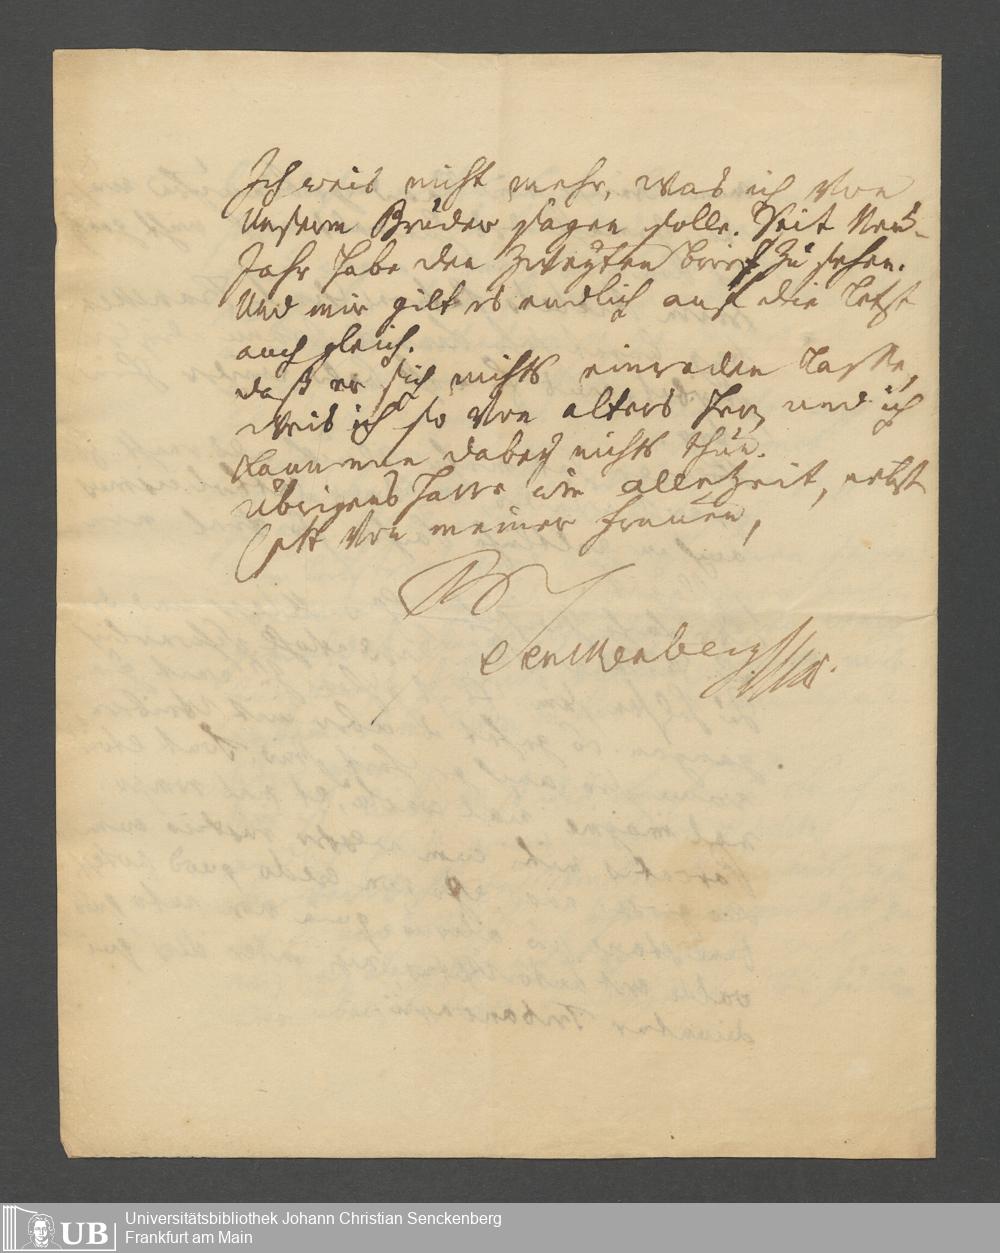 Ich weis nicht mehr, was ich von
Unserm Bruder sagen solle. Seit Neu-
Jahr habe den zweyten brief zu sehen.
Und mir gilt es endlich auf die letzt
auch gleich.
daß er sich nichts einreden lasse,
weis ich so von alters her, und ich
kann nun dabey nichts thun.
übrigens harre wie allezeit, nebst
von meiner Frauen,
Senckenberg
Universitätsbibliothek Johann Christian Senckenberg
Frankfurt am Main
UB